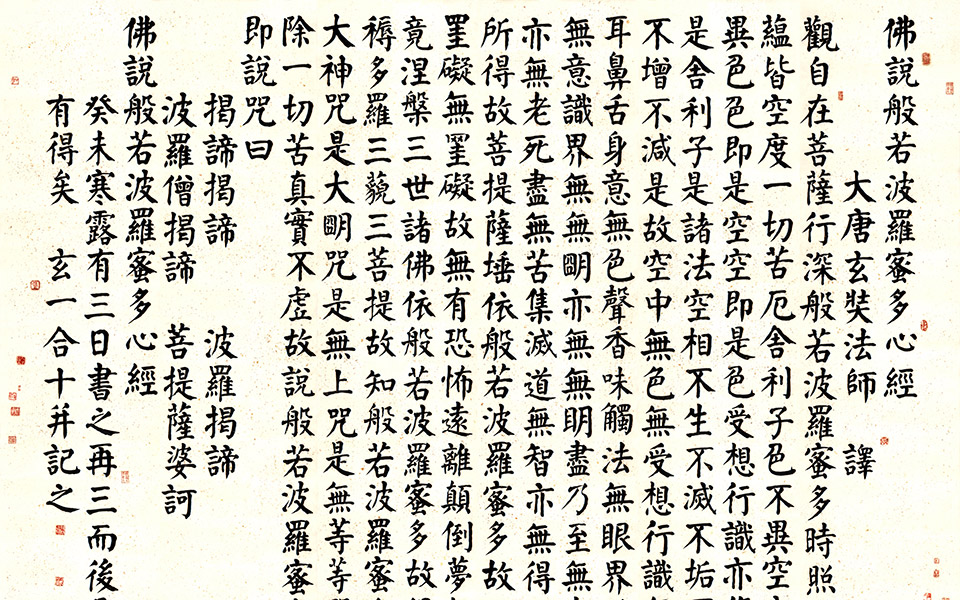 佛說般若波羅蜜多心經
大唐玄奘法師 譯
觀自在菩薩行深般若波羅蜜多時照
蘊皆空度一切苦厄舍利子色不異空
異色色即是空空即是色受想行識亦
是舍利子是諸法空相不生不滅不垢
不增不減是故空中無色無受想行識
耳鼻舌身意無色聲香味觸法無眼界
無意識界無無朙亦無無眀盡乃至無
亦無老死盡無苦集滅道無智亦無得
所得故菩提薩埵依般若波羅蜜多故
罣礙無罣礙故無有恐怖遠離顛倒夢
竟涅槃三世諸佛依般若波羅蜜多故
耨多羅三藐三菩提故知般若波羅蜜
大神咒是大朙咒是無上咒是無等等
除一切苦真實不虛故說般若波羅蜜
即說咒曰
揭諦揭諦 波羅揭諦
波羅僧揭諦 菩提薩婆訶
佛說般若波羅蜜多心經
癸未寒露有三日書之再三而後
有得矣 玄一合十并記之